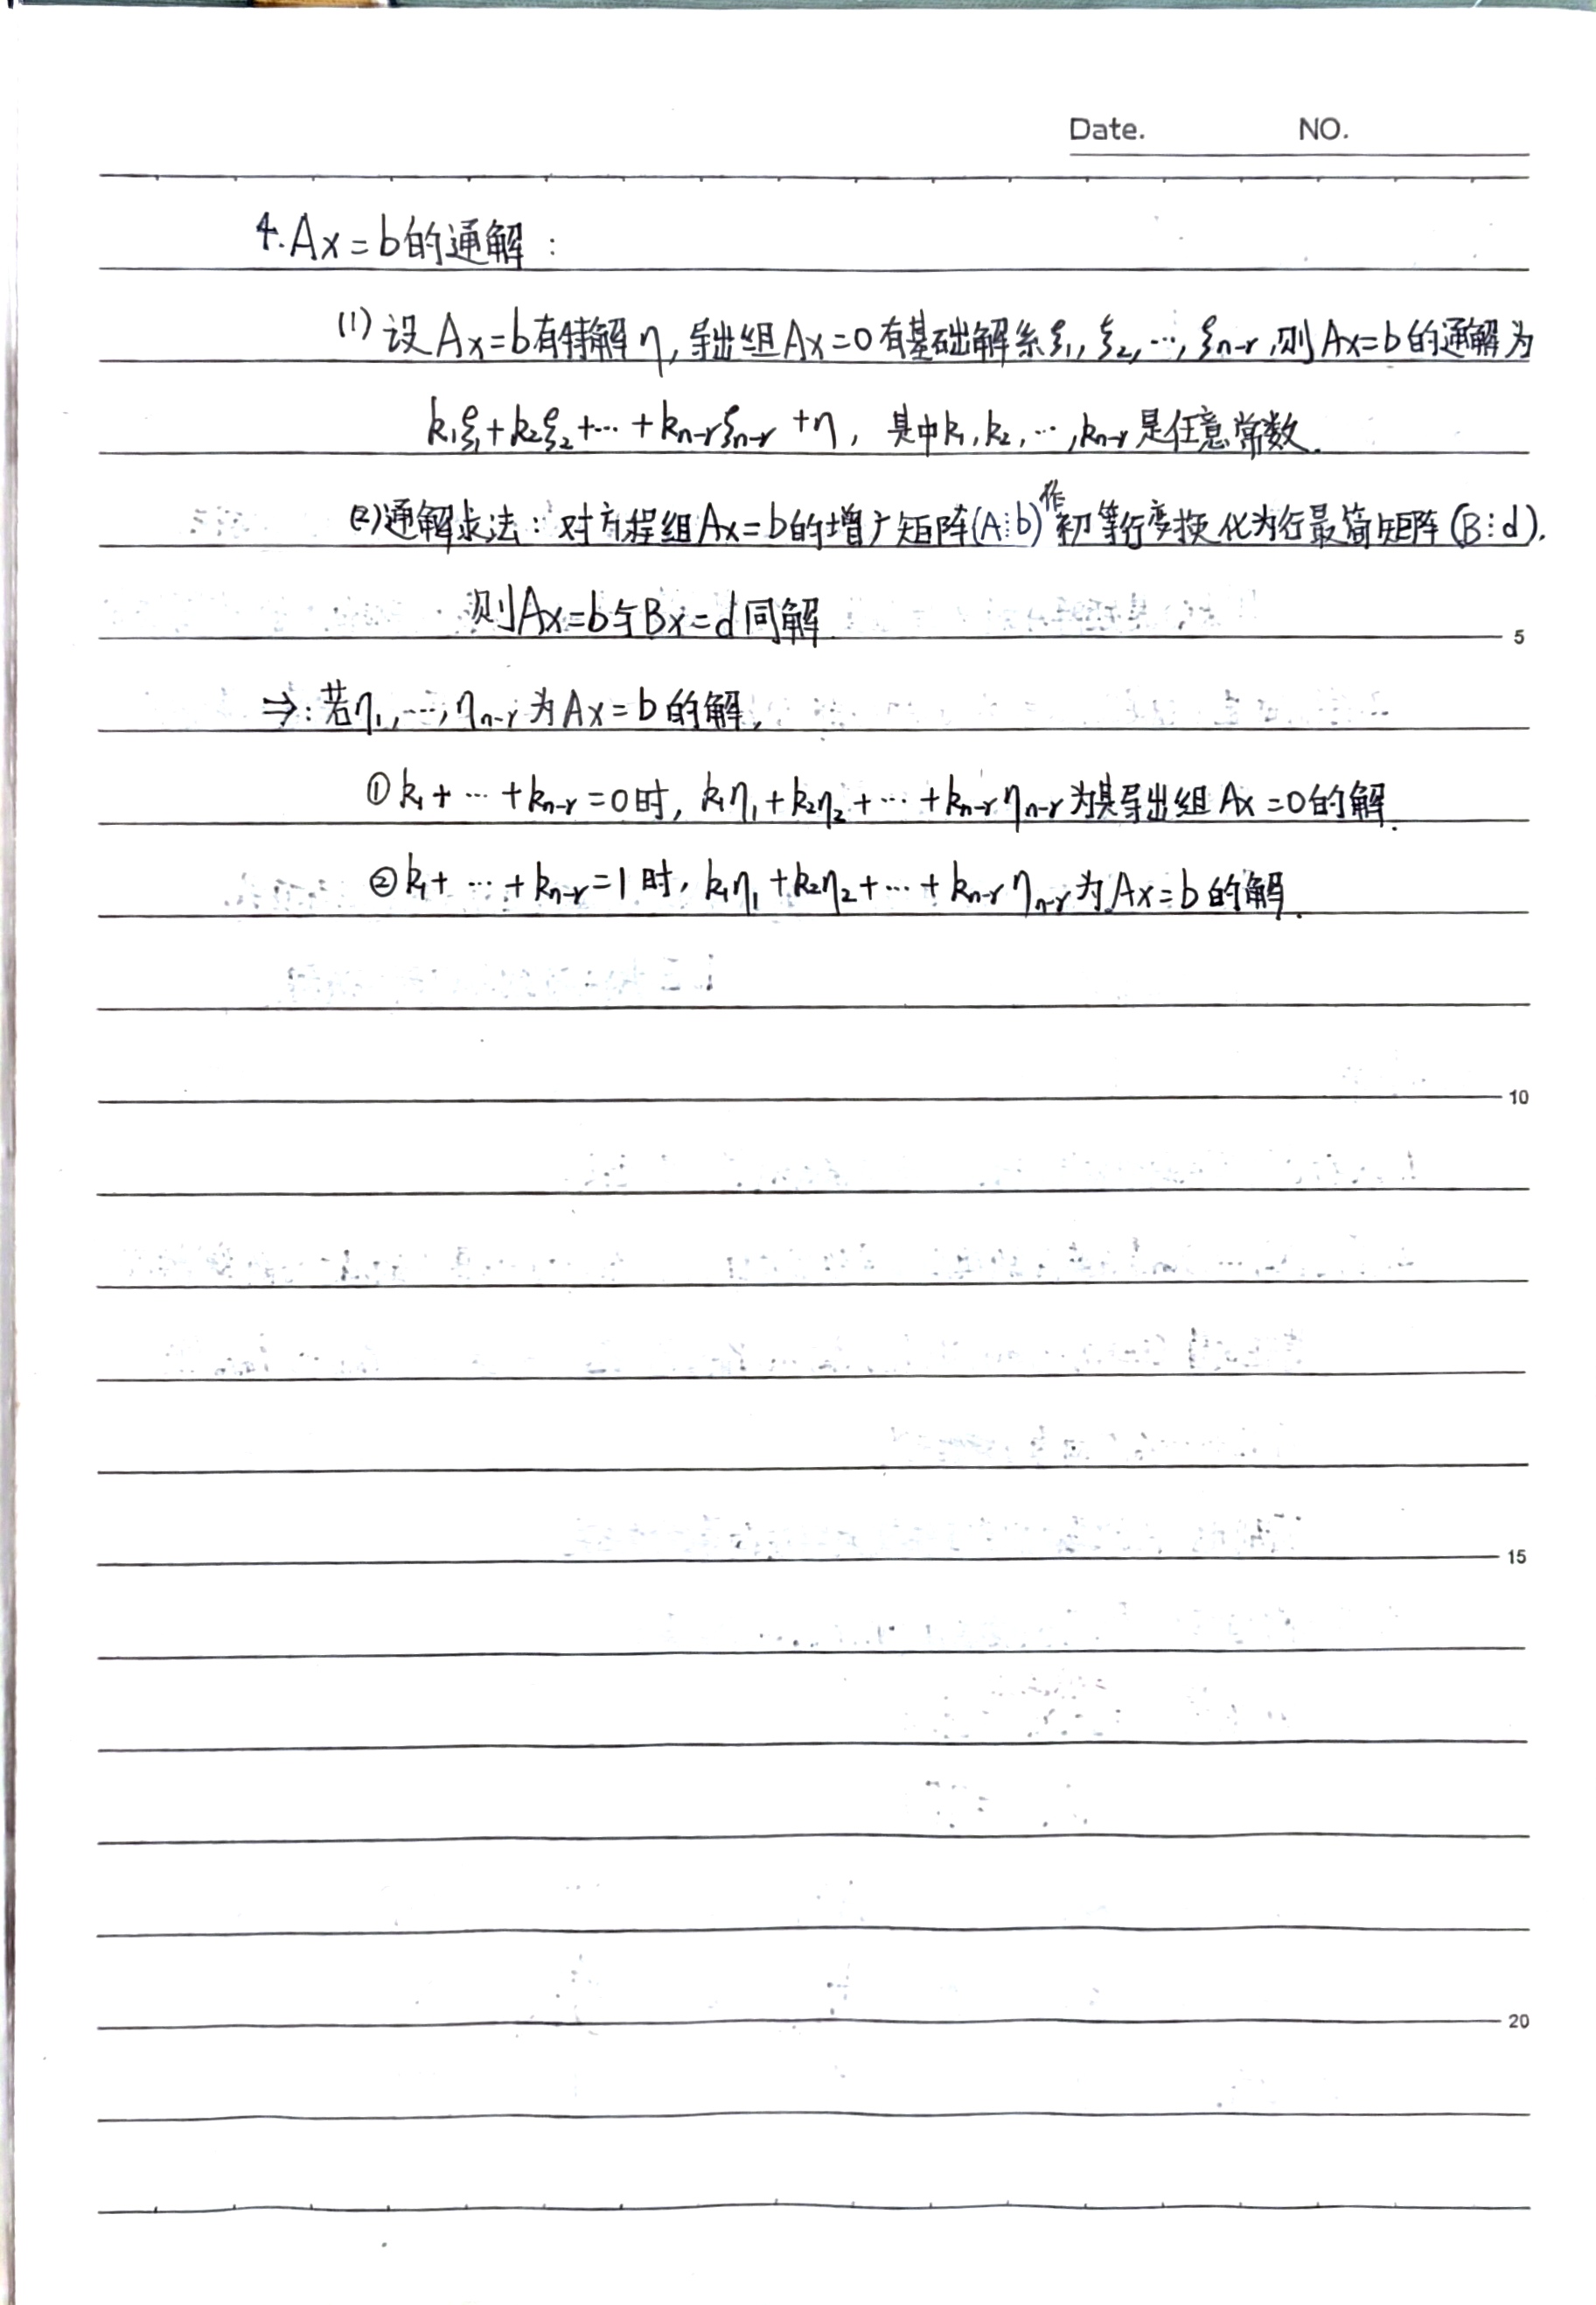 Date. NO.
4. Ax=b的通解：
(1) 设Ax=b有特解η, 导出组Ax=0有基础解系ξ₁, ξ₂, …, ξn-r, 则Ax=b的通解为
k₁ξ₁+k₂ξ₂+…+kn-rξn-r+η, 其中k₁, k₂, …, kn-r是任意常数.
(2)通解求法：对方程组Ax=b的增广矩阵(A⋮b)作初等行变换化为行最简矩阵(B⋮d),
则Ax=b与Bx=d同解
5
⇒: 若η₁, …, ηn-r为Ax=b的解,
①k₁+…+kn-r=0时, k₁η₁+k₂η₂+…+kn-rηn-r为其导出组Ax=0的解.
②k₁+…+kn-r=1时, k₁η₁+k₂η₂+…+kn-rηn-r为Ax=b的解.
10
15
20